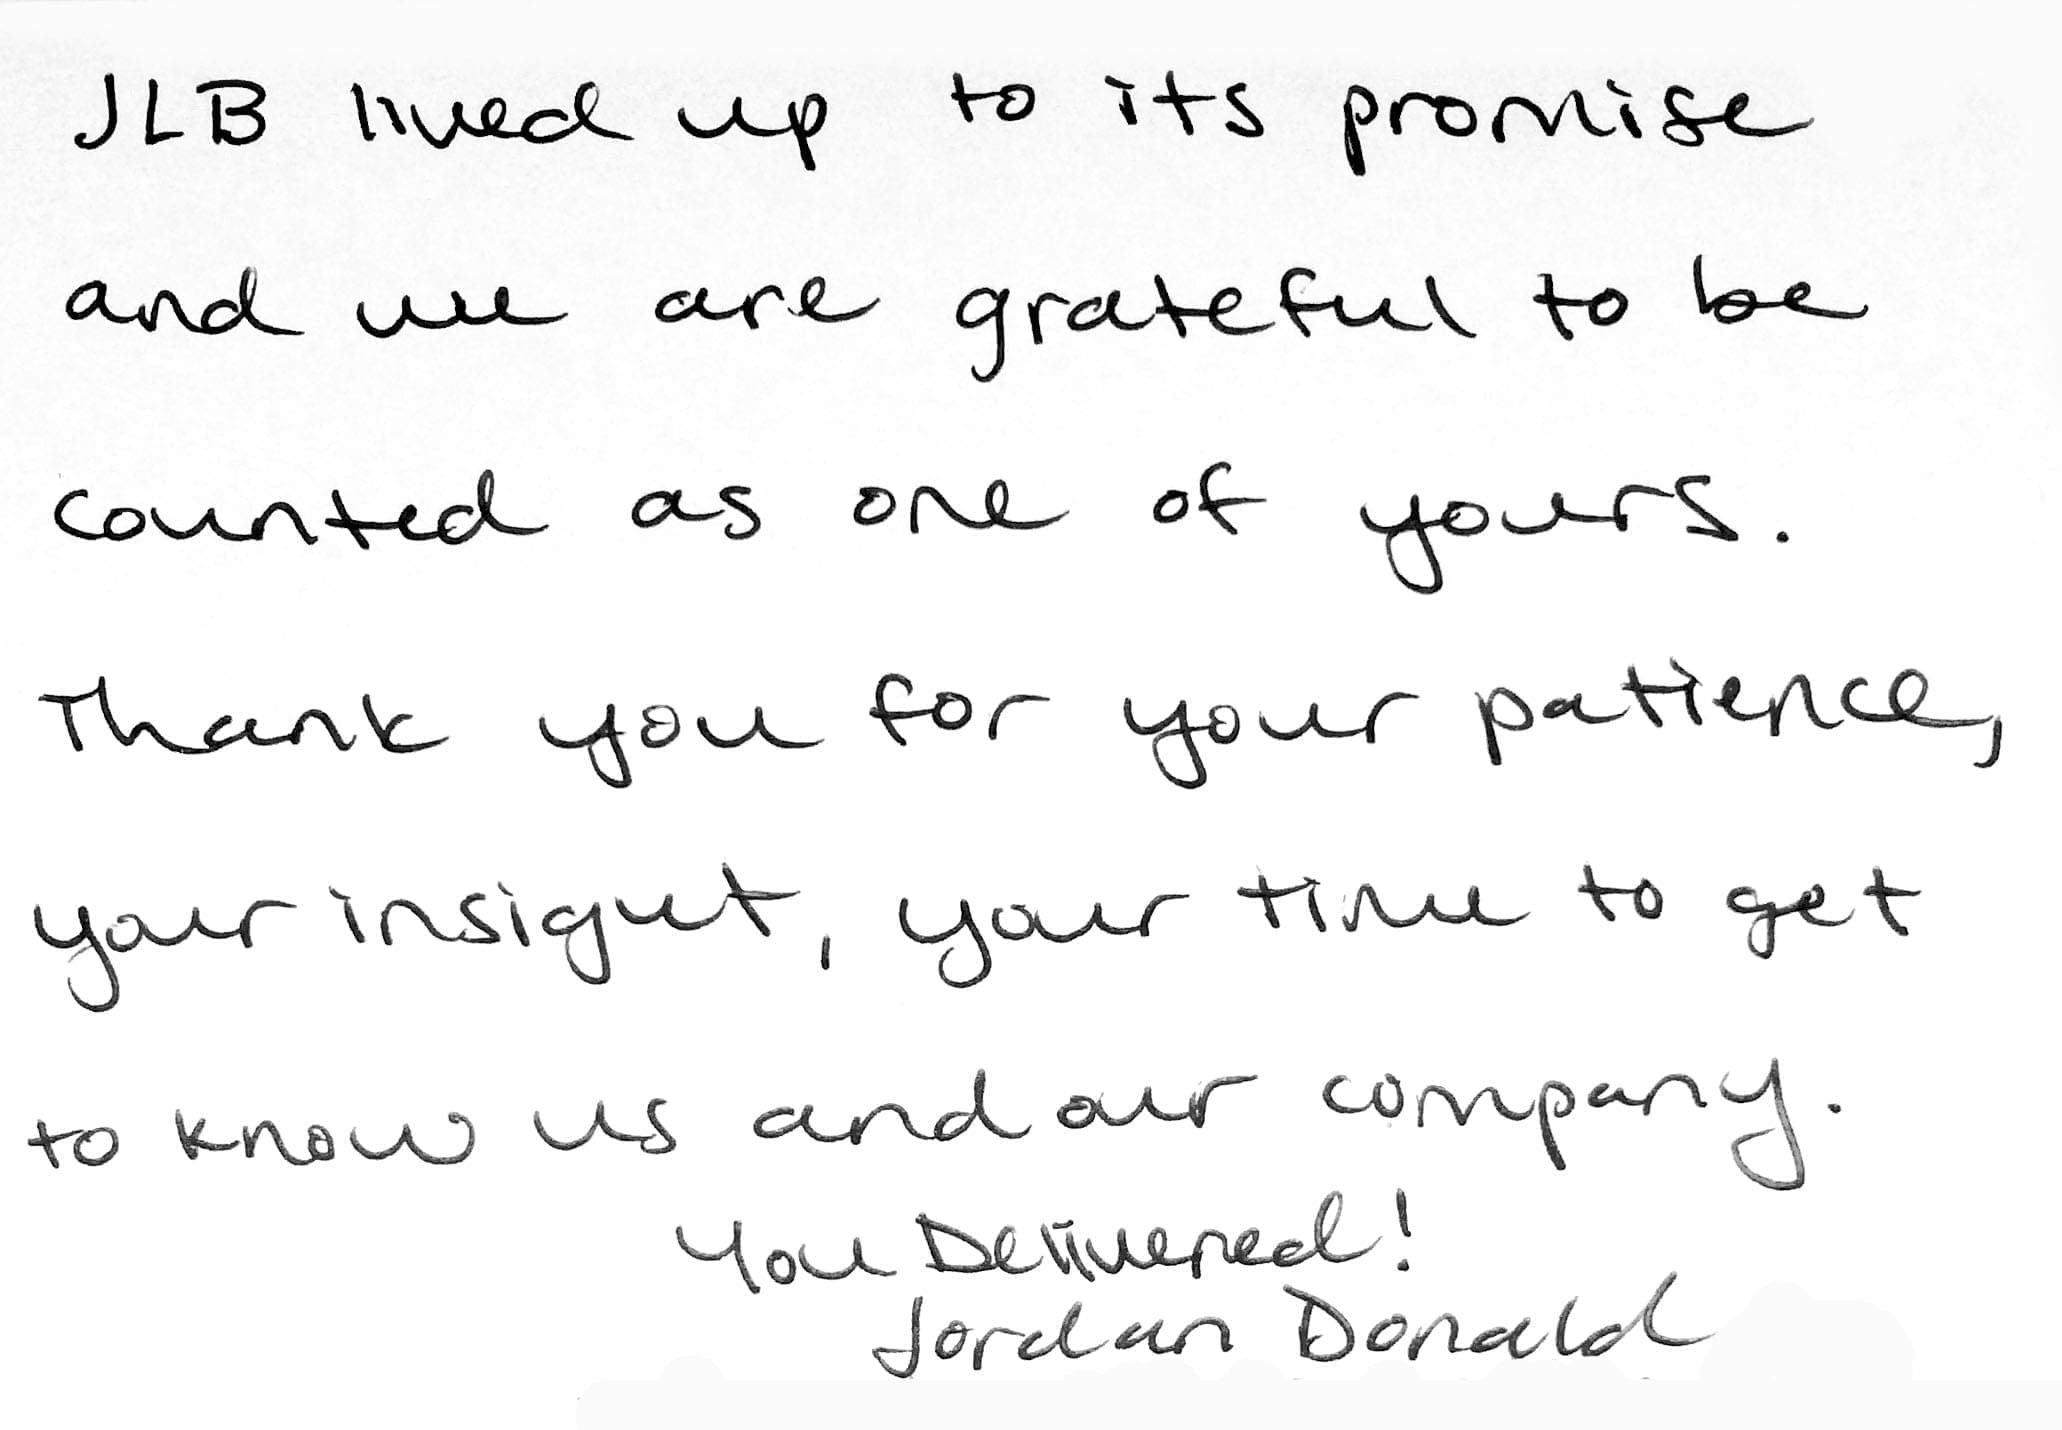 JLB lived up to its promise
and we are grateful to be
counted as one of yours.
Thank you for your patience,
your insight, your time to get
to know us and our company.
You Delivered!
Jordan Donald